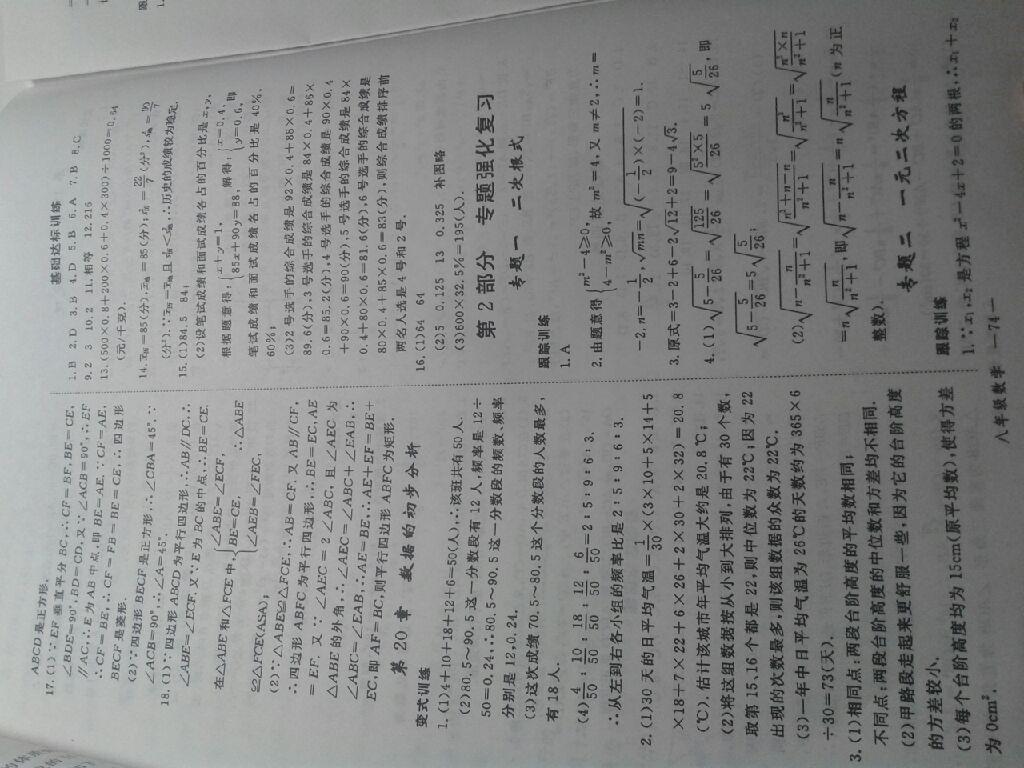 ABCD是正方形.
17.(1)∵EF垂直平分BC,∴CF=BF,BE=CE,
∠BDE=90°,BD=CD,又∵∠ACB=90°,∴EF
∥AC,∴E为AB中点,即BE=AE,∵CF=AE,
∴CF=BE,∴CF=FB=BE=CE,∴四边形
BECF是菱形.
(2)∵四边形BECF是正方形,∴∠CBA=45°,∵
∠ACB=90°,∴∠A=45°.
18.(1)∵四边形ABCD为平行四边形,∴AB∥DC,∴
∠ABE=∠ECF,又∵E为BC的中点,∴BE=CE,
在△ABE和△FCE中,{∠ABE=∠ECF, BE=CE, ∠AEB=∠FEC. ∴△ABE
≌△FCE(ASA);
(2)∵△ABE≌△FCE,∴AB=CF,又AB∥CF,
∴四边形ABFC为平行四边形,∴BE=EC,AE
=EF,又∵∠AEC=2∠ABC,且∠AEC为
△ABE的外角,∴∠AEC=∠ABC+∠EAB,∴
∠ABC=∠EAB,∴AE=BE,∴AE+EF=BE+
EC,即AF=BC,则平行四边形ABFC为矩形.
第20章 数据的初步分析
变式训练
1.(1)4+10+18+12+6=50(人),∴该班共有50人.
(2)80.5~90.5这一分数段有12人,频率是12÷
50=0.24,∴80.5~90.5这一分数段的频数、频率
分别是12,0.24.
(3)这次成绩70.5~80.5这个分数段的人数最多,
有18人.
(4)4/50:10/50:18/50:12/50:6/50=2:5:9:6:3.
∴从左到右各小组的频率比是2:5:9:6:3.
2.(1)30天的日平均气温=1/30×(3×10+5×14+5
×18+7×22+6×26+2×30+2×32)=20.8
(℃),估计该城市年平均气温大约是20.8℃;
(2)将这组数据按从小到大排列,由于有30个数,
取第15、16个都是22,则中位数为22℃;因为22
出现的次数最多,则该组数据的众数为22℃.
(3)一年中日平均气温为26℃的天数约为365×6
÷30=73(天).
3.(1)相同点:两段台阶高度的平均数相同;
不同点:两段台阶高度的中位数和方差均不相同.
(2)甲路段走起来更舒服一些,因为它的台阶高度
的方差较小.
(3)每个台阶高度均为15cm(原平均数),使得方差
为0cm².
基础达标训练
1.B 2.D 3.B 4.D 5.B 6.A 7.B 8.C
9.2 3 10.2 11.相等 12.216
13.(500×0.8+200×0.6+0.4×300)÷1000=0.64
(元/千克).
(2)设笔试成绩和面试成绩各占的百分比是x,y,
根据题意得,{x+y=1, 85x+90y=88, 解得,{x=0.4, y=0.6, 即
笔试成绩和面试成绩各占的百分比是40%,
60%;
(3)2号选手的综合成绩是92×0.4+88×0.6=
89.6(分),3号选手的综合成绩是84×0.4+86×
0.6=85.2(分),4号选手的综合成绩是90×0.4
+90×0.6=90(分),5号选手的综合成绩是84×
0.4+80×0.6=81.6(分),6号选手的综合成绩是
80×0.4+85×0.6=83(分),则综合成绩排序前
两名人选是4号和2号.
16.(1)64 64
(2)5 0.125 13 0.325 补图略
(3)600×32.5%=195(人).
第2部分 专题强化复习
专题一 二次根式
跟踪训练
1.A
2.由题意得{m²-4≥0, 4-m²≥0, 故m²=4,又m≠2,∴m=
-2,n=-1/2,√mn=√((-1/2)×(-2))=1.
3.原式=3-2+6-2√12+2=9-4√3.
4.(1)√(5-5/26)=√(125/26)=√(5²×5/26)=5√(5/26),即
√(5-5/26)=5√(5/26);
(2)√(n-n/(n²+1))=√((n³+n-n)/(n²+1))=√(n³/(n²+1))=√(n²×n/(n²+1))
=n√(n/(n²+1)),即√(n-n/(n²+1))=n√(n/(n²+1))(n为正
整数).
专题二 一元二次方程
跟踪训练
1.∵x₁,x₂是方程x²-4x+2=0的两根,∴x₁+x₂
八年级数学 —74—